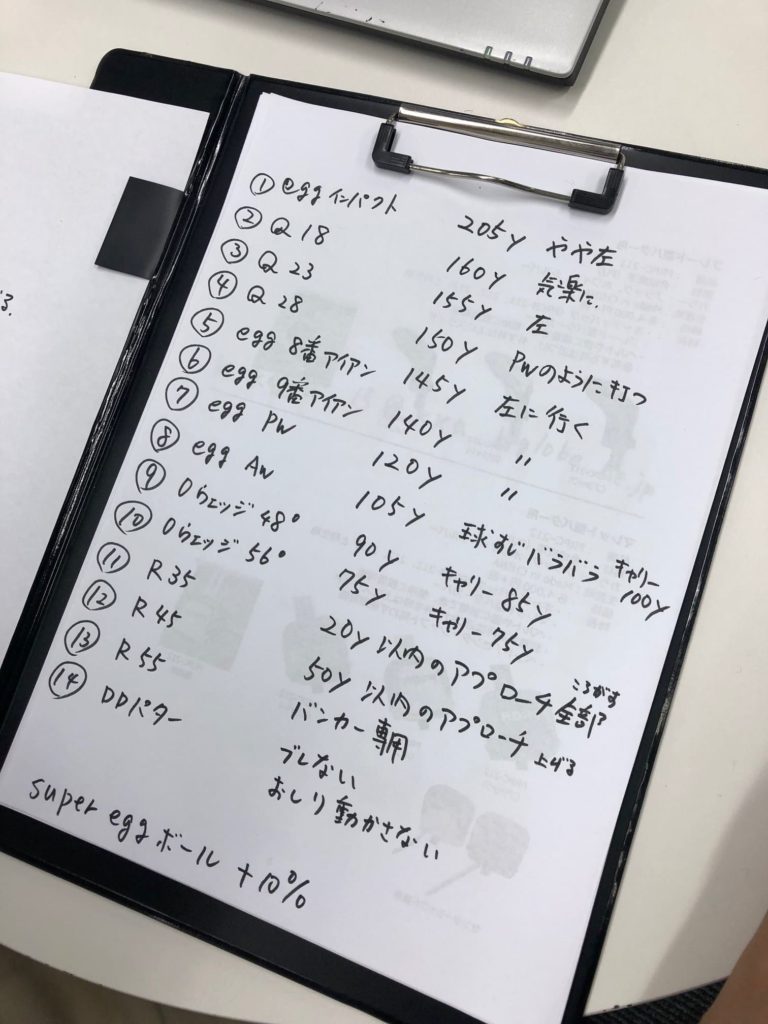 ① egg インパクト 205y やや左
② Q 18 160y 気楽に.
③ Q 23 155y 左
④ Q 28 150y PWのように打つ
⑤ egg 8番アイアン 145y 左に行く
⑥ egg 9番アイアン 140y 〃
⑦ egg PW 120y 〃
⑧ egg AW 105y 球すじバラバラ キャリー 100y
⑨ Dウェッジ 48° 90y キャリー 85y
⑩ Dウェッジ 56° 75y キャリー 75y
⑪ R 35 20y 以内のアプローチ全部 ころがす
⑫ R 45 50y 以内のアプローチ 上げる
⑬ R 55 バンカー専用
⑭ DDパター ブレない
おしり動かさない
super egg ボール +10%